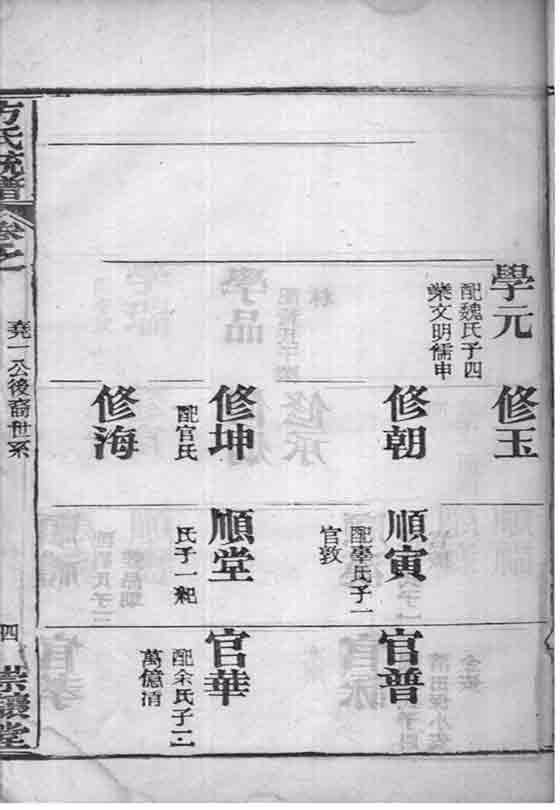 學元
配魏氏子四
榮文明儒申
修玉
修朝
修坤
配官氏
修海
順寅
配辜氏子一
官敦
順堂
氏子一紀
官普
官華
配余氏子二
萬億清
方氏統譜
卷之
堯一公後裔世系
四
堂